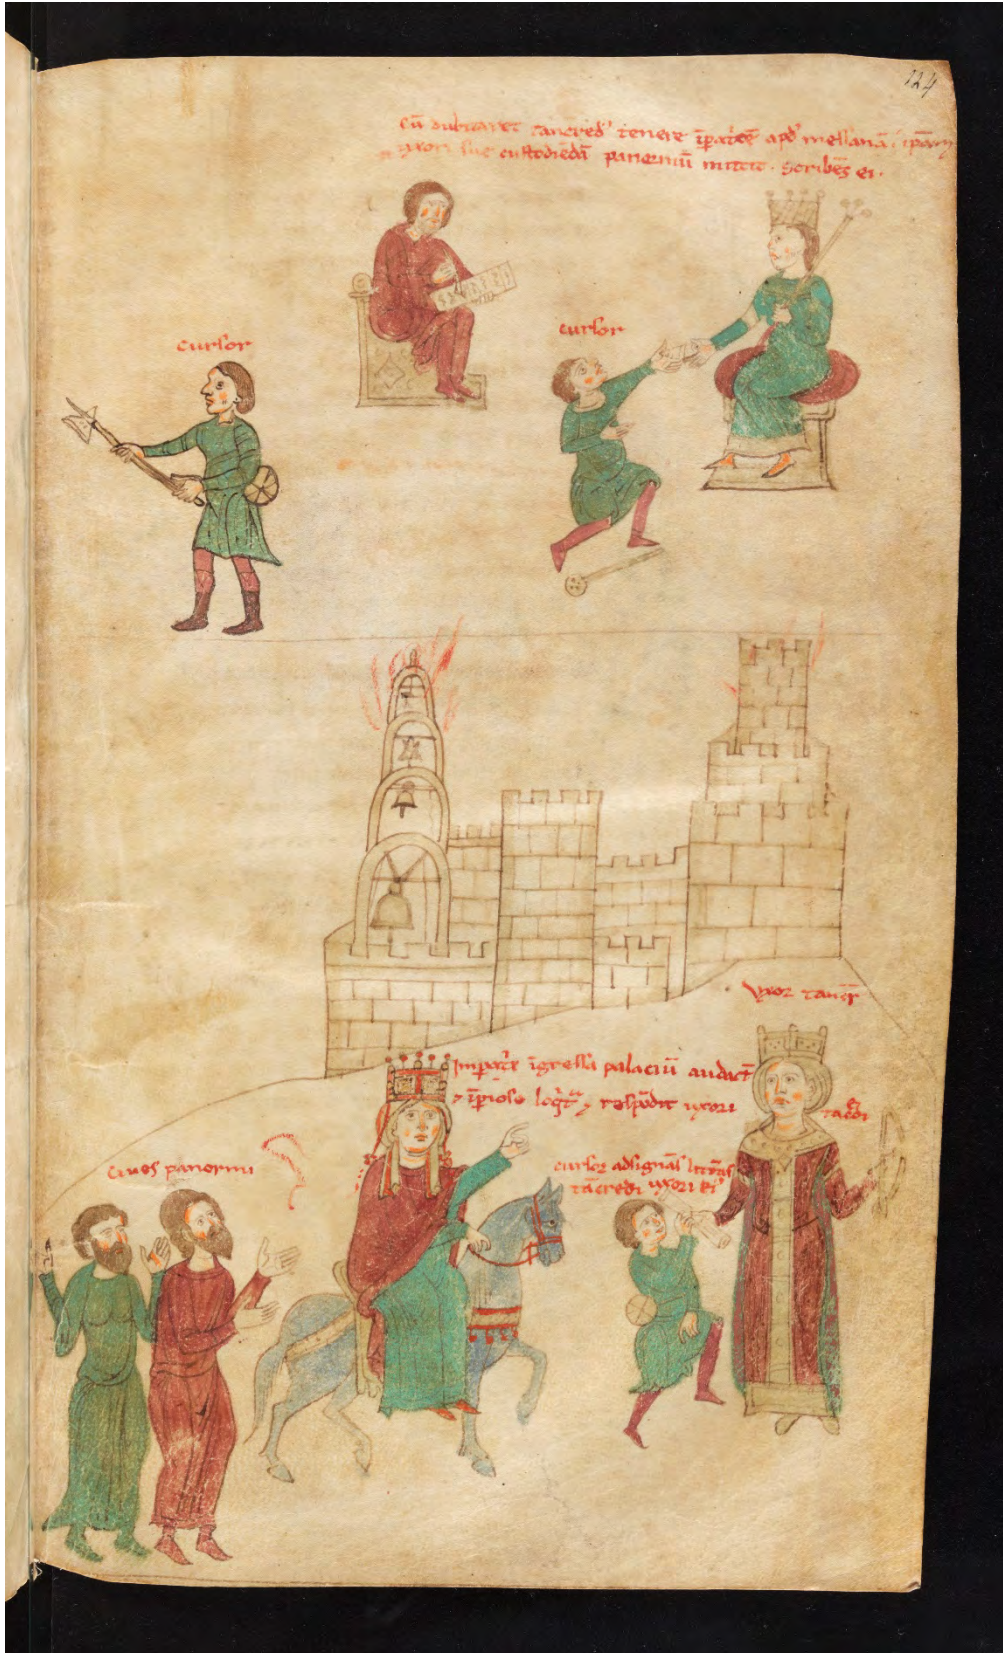 124
Cū dubitaret Tancred' tenere īperatͥcē apd' messanā, ipām
uxori sue custodiēdā panermū mittit. Scribēs ei.
cursor
cursor
Uxor tancͬ
Imperatͥx īgressa palaciū audact'
⁊ īpiose
respōdit uxori
tācͤdi
Cives panormi
cursor adsignās litteras
tācredi uxori ei'